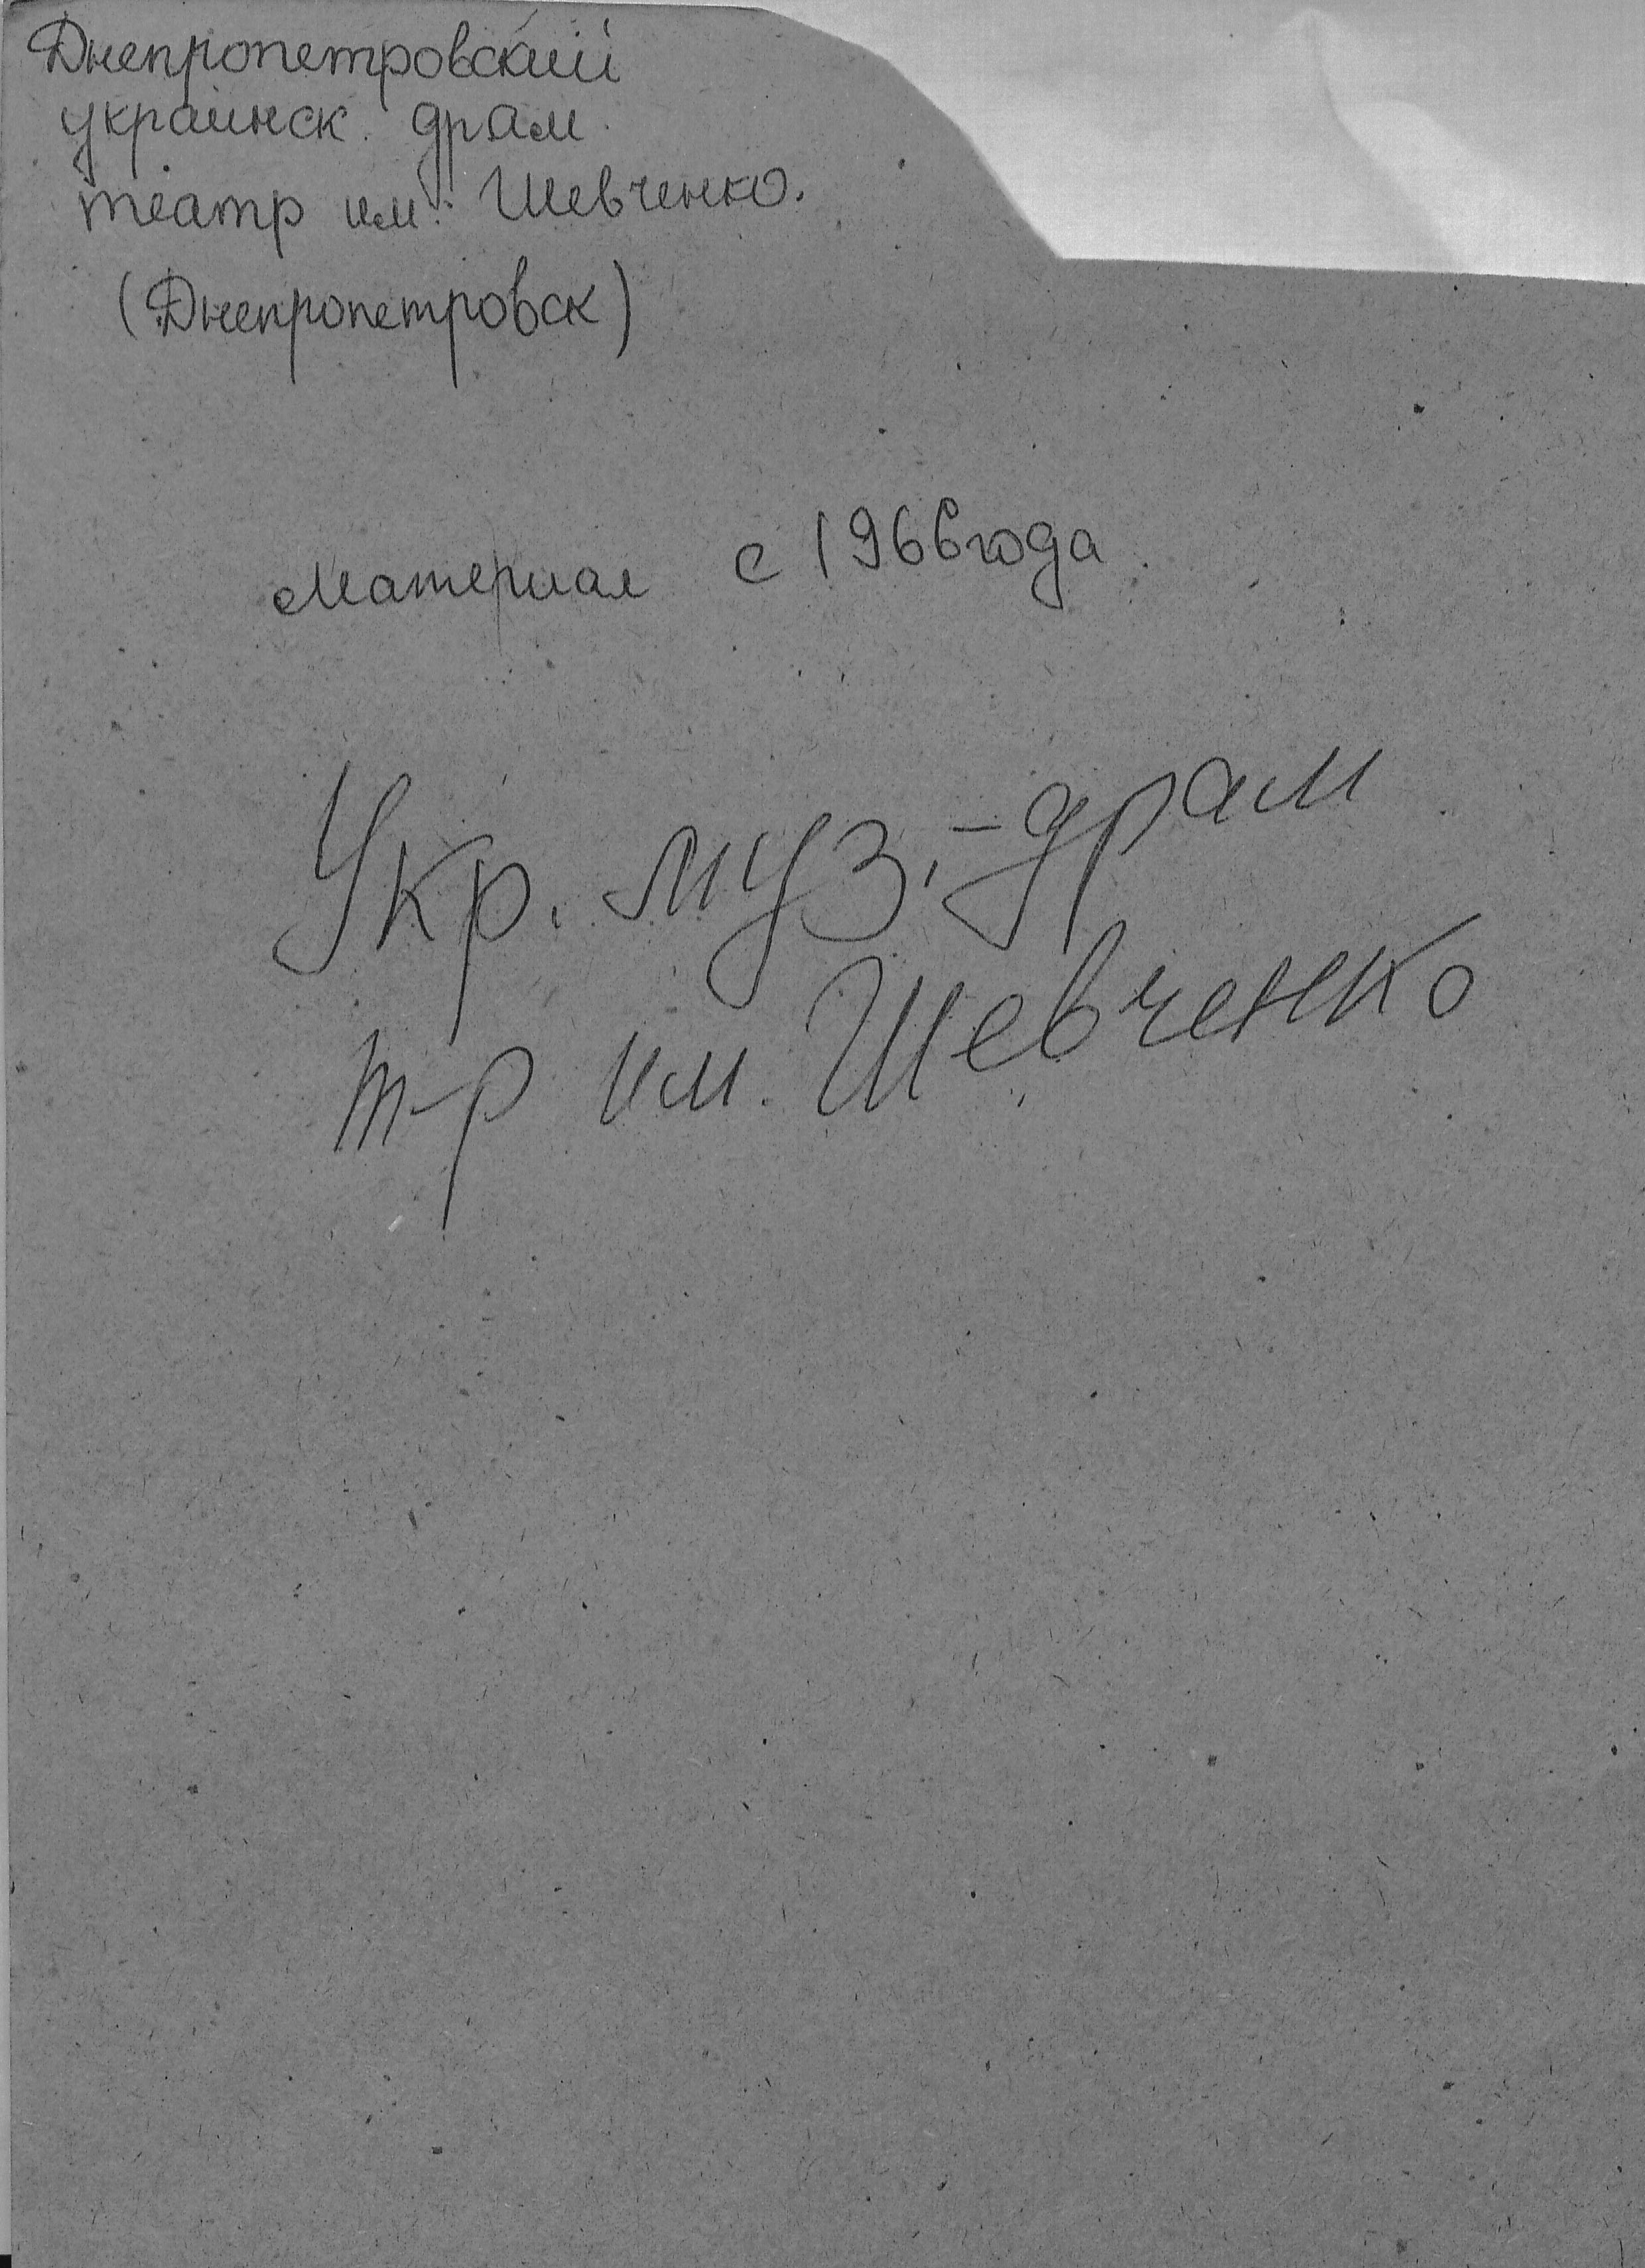 Днепропетровский
украинск. драм.
театр им. Шевченко.
(Днепропетровск)
Материал с 1966 года
Укр. муз.-драм
т-р им. Шевченко